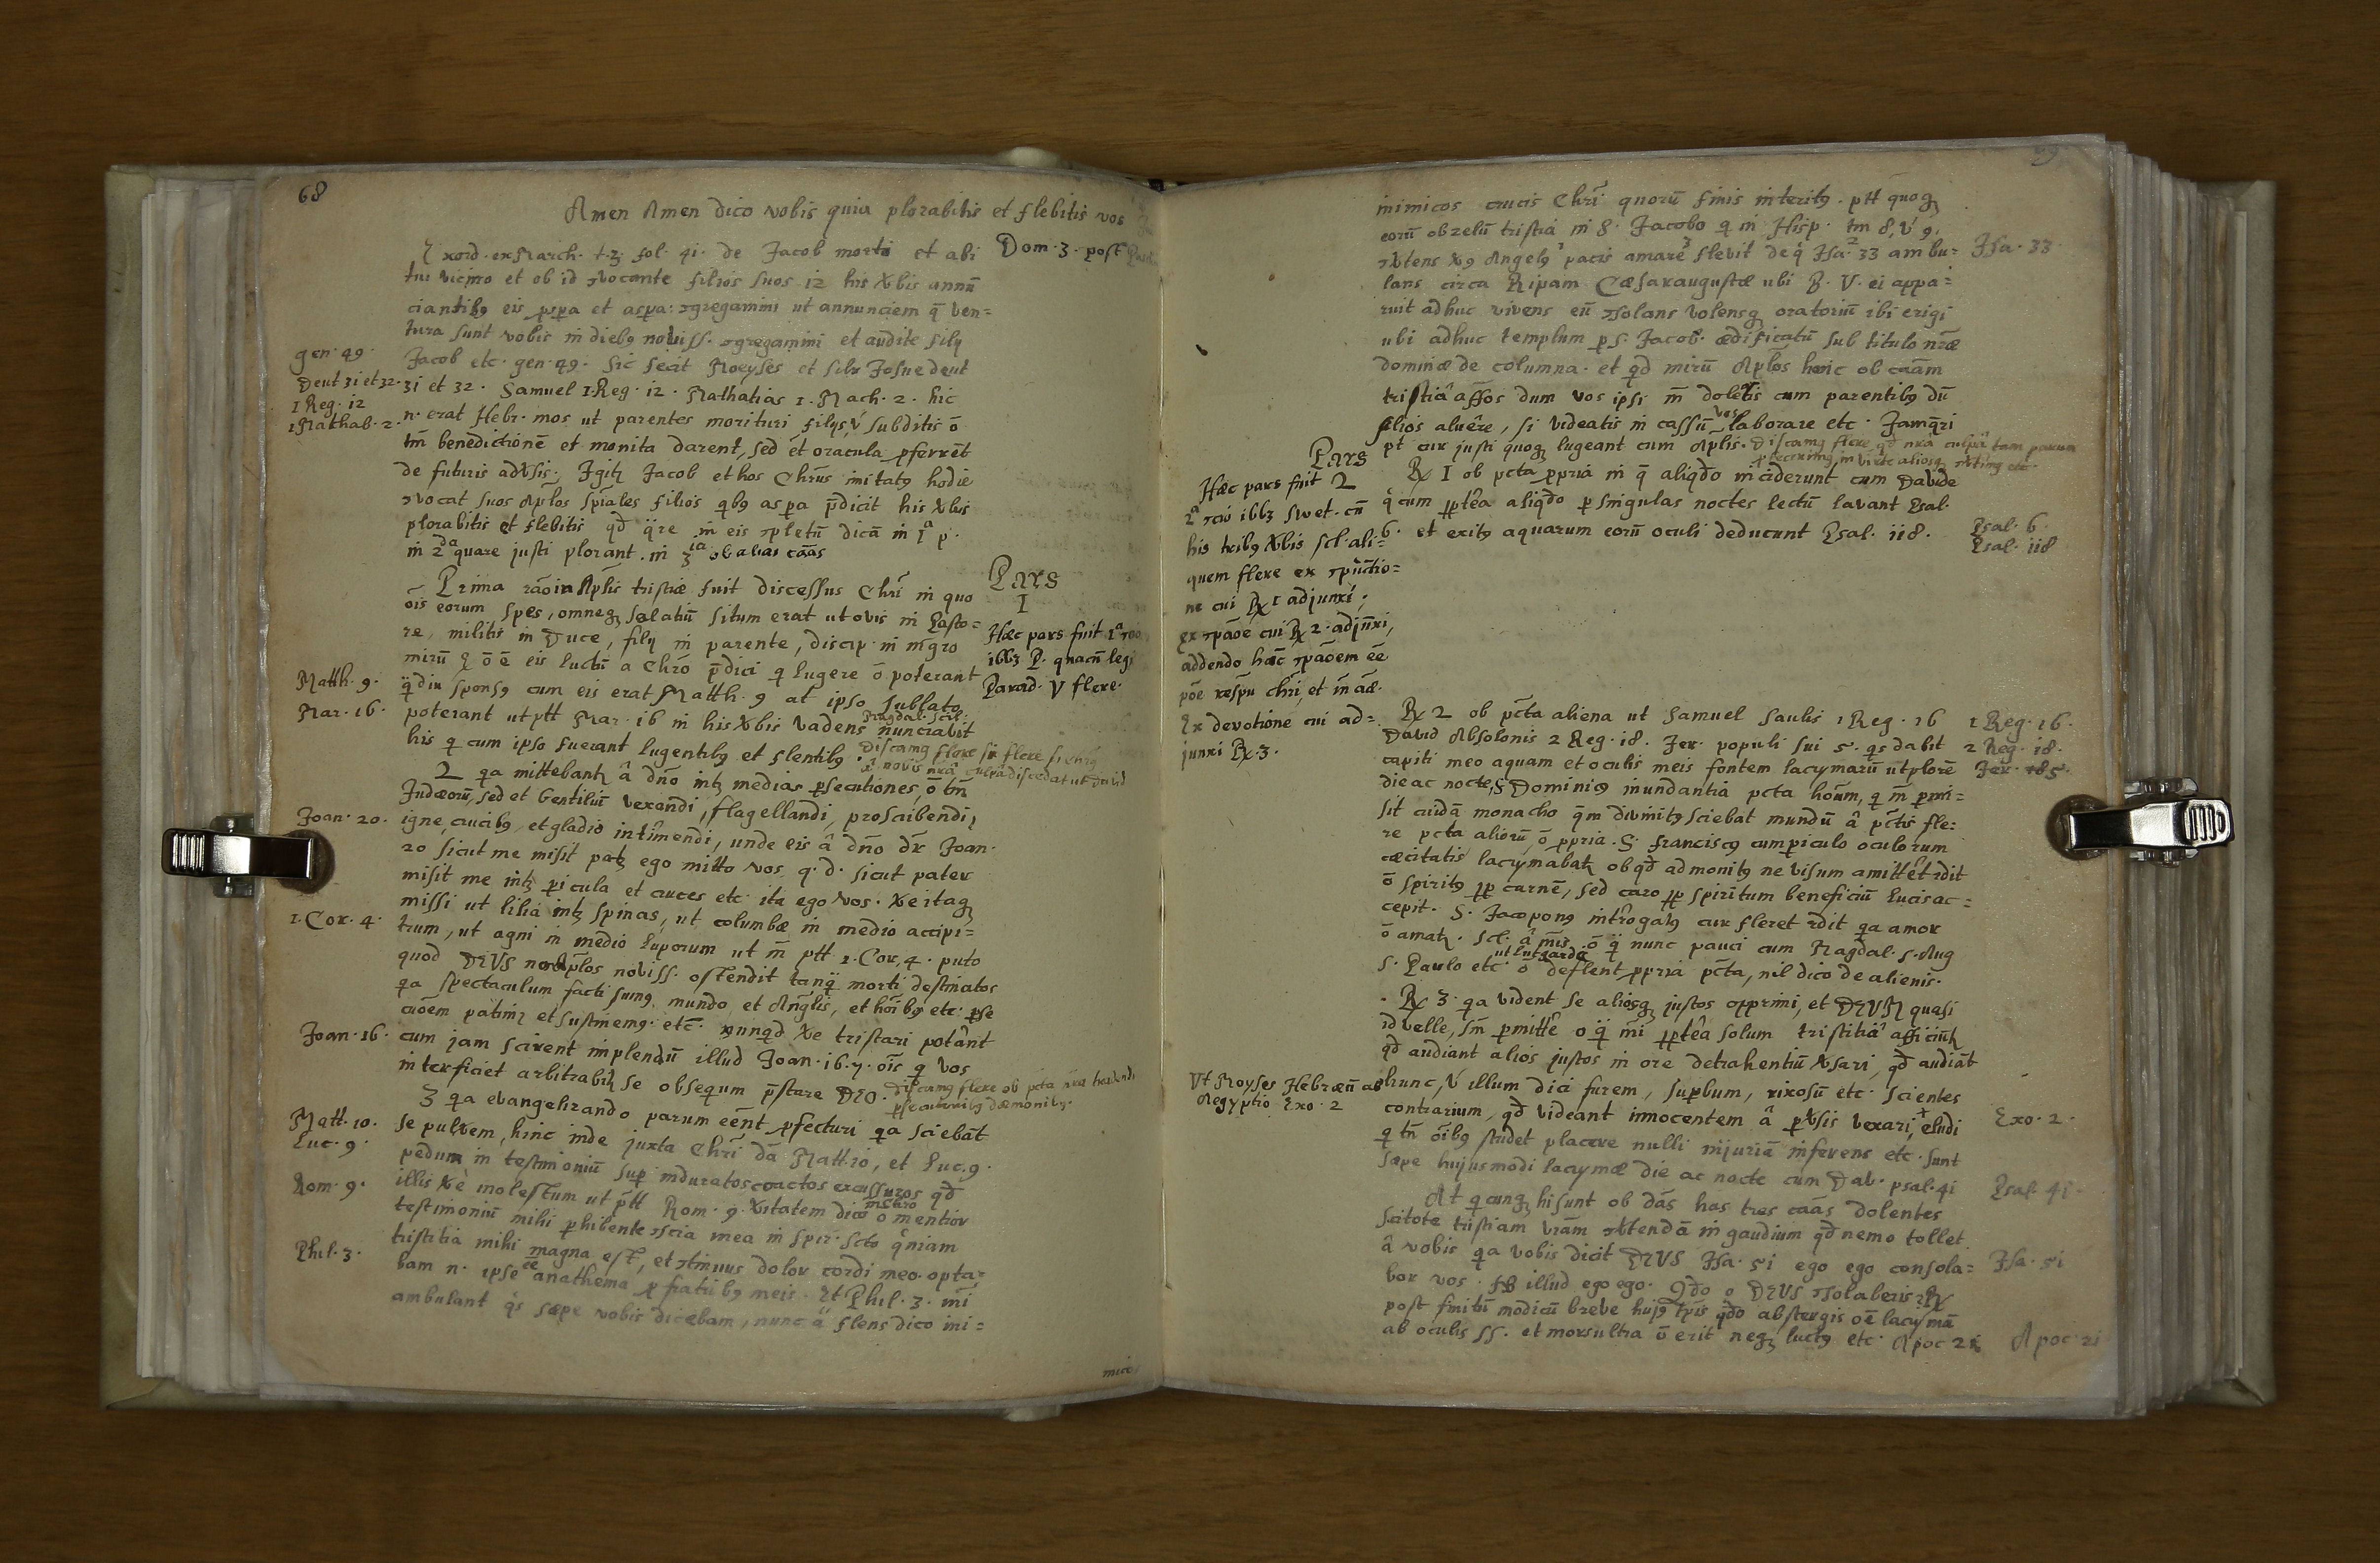 68
Amen Amen dico vobis quia plorabitis et flebitis vos
Dom. 3. post
Exord. ex March. t. 3. fol. 41. de Jacob morti et abi
tui vicino et ob id vocante filios suos 12 his vbis annū
ciantibꝰ eis pspa et aspa: ꝯgregamini ut annunciem q̄ ven=
tura sunt vobis in diebꝰ noviss. ꝯgregamini et audite filij
gen. 49.
Jacob etc. gen. 49. Sic fecit Moyses et Josue deut
Deut 31 et 32.
31 et 32. Samuel 1. Reg. 12. Mathatias 1. Mach. 2. hic
1 Reg. 12
1 Mathab. 2.
n. erat Hebr. mos ut parentes morituri filijs, v́ subditis ō
tm̄ benedictionē et monita darent, sed et oracula pferrēt
de futuris advsis. Igit̄ Jacob et hos Chrūs imitatꝰ hodie
ꝯvocat suos Aplos spiales filios qbꝰ aspa p̄dicit his vbis
plorabitis et flebitis qđ q̈re in eis ꝯpletū dicā in 1ª p.
in 2da quare justi plorant. in 3ia ob alias cāas
Pars
I
Prima rāo in Aplis tristiæ fuit discessus Chrī in quo
ois eorum spes, omneqꝫ solatiū situm erat ut ovis in Pasto=
re, militis in Duce, filij in parente, discip. in mgro
Hæc pars fuit 1ª
ibbꝫ P. quacū legi
Parad. V flere.
mirū ō ē eis luctū a Chrō p̄dici q lugere ō poterant
Matth. 9.
q̈diu sponsꝰ cum eis erat Matth. 9 at ipso sublato
Mar. 16.
poterant ut ptt Mar. 16 in his vbis vadens Magdal. scil. nunciabit
his q cum ipso fuerant lugentibꝰ et flentibꝰ. Discamꝰ flere
a nobis nrâ culpâ discedat ut David
2 qa mittebant̄ â dn̄o int̄ medias psecutiones, ō tm̄
Judæorū, sed et Gentiliū vexandi, flagellandi, proscibendi,
Joan. 20.
igne, crucibꝰ, et gladio intimendi, unde eis â dn̄o dr̄ Joan.
20 sicut me misit pat̄ ego mitto vos q. d. sicut pater
misit me int̄ picula et cruces etc. ita ego vos. Ve itaqꝫ
missi ut lilia int̄ spinas, ut columbæ in medio accipi=
1. Cor. 4.
trum, ut agni in medio luporum ut m̄ ptt 1. Cor. 4. puto
quod DEUS nos Aplos noviss. ostendit tanq̈ morti destinatos
qa spectaculum facti sumꝰ mundo, et Angl̄is, et hōibꝰ etc. pse
cuōem patimꝰ et sustinemꝰ. etc. nunqd Ve tristari potânt
Joan. 16.
cum jam scirent implendū illud Joan. 16. 7. ois q vos
interficiet arbitrabit̄ se obsequm p̄stare DEO. Discamꝰ flere ob pcta nra tradendi
psecutoribꝰ dæmonibꝰ.
3 qa evangelizando parum eēnt pfecturi qa sciebāt
Matt. 10.
se pulvem, hinc inde juxta Chrī dā Matt. 10, et Luc. 9.
Luc. 9.
pedum in testimoniū sup induratos coactos excussuros qđ
Rom. 9.
illis Ve molestum ut ptt Rom. 9. Vitatem dico ō mentior
testimoniū mihi phibente ꝯscia mea in spir. scto qniam
tristitia mihi magna est, et ꝯtinuus dolor cordi meo. opta=
Phil. 3.
bam n. ipse anathema p fratribꝰ meis. Et Phil. 3. mī
ambulant q́s sæpe vobis dicebam, nunc ä flens dico ini=
micos
inimicos crucis Chrī quorū finis interitꝰ. ptt quoqꝫ
eorū ob zelū tristia in S. Jacobo q in Hisp. tm 8, v́ 9.
ꝯvtens Vꝰ Angelꝰ pacis amare flevit de q Isa. 33 ambu=
Isa. 33
lans circa Ripam Cæsaraugustæ ubi B. V. ei appa=
ruit adhuc vivens eū ꝯsolans volensqꝫ oratoriū ibi erigi
ubi adhuc templum p S. Jacob. ædificatū sub titulo nræ
dominæ de columna. et qđ mirū Aplos hāic ob cāam
tristiâ affōs dum vos ipsi m̄ doletis cum parentibꝰ dū
filios aluêre, si videatis in cassū vos laborare etc. Jam q̄ri
pt cur justi quoqꝫ lugeant cum Aplis. Discamꝰ flere qđ nra culpa tam parum
pfecerimꝰ in virtte aliosqꝫ
Pars
2
Hæc pars fuit
2ª ibbꝫ Swet. cū
his tribꝰ vbis scl. ali=
quem flere ex ꝯpūctio=
ne cui ℞ 1 adjunxi;
ex ꝯpāōe cui ℞ 2. adjūxi,
addendo hāc ꝯpāōem eē
pōe respu chrī, et in aē.
Ex devotione cui ad=
junxi ℞. 3.
℞ 1 ob pcta ppria in q̄ aliqđo inciderunt cum Davide
q́ cum pptêa aliqđo p singulas noctes lectū lavant Psal.
6. et exitꝰ aquarum eorū oculi deducunt Psal. 118.
Psal. 6.
Psal. 118
℞ 2 ob pcta aliena ut Samuel Saulis 1 Reg. 16
1 Reg. 16.
David Absolonis 2 Reg. 18. Jer. populi sui 5. qs dabit
2 Reg. 18.
capiti meo aquam et oculis meis fontem lacymarū ut plorē
Jer. 5.
die ac nocte, S. Dominicꝰ inundantia pcta hōum, q m̄ pmi=
sit cuidā monacho q̄m divinitꝰ sciebat mundū â pctis fle=
re pcta aliorū, ō ppria. S. Franciscꝰ cum piculo oculorum
cæcitatis lacymabat̄ ob qđ admonitꝰ ne visum amittêt rdit
ō spiritꝰ pp carnē, sed caro pp spiritum beneficiū lucis ac=
cepit. S. Jacoponꝰ intrōgatꝰ cur fleret rdit qa amor
ō amat̄. scl. â m̄is ō q̈ nunc pauci cum Magdal. S. Aug
S. Paulo etc. ut Lutgarda ō deflent ppria pcta, nil dico de alienis.
℞ 3. qa vident se aliosqꝫ justos opprimi, et DEUM quasi
id velle, sm̄ pmittê ō q̈ m̄i pptêa solum tristitiâ afficiūt̄
qđ audiant alios justos in ore detrahentiū vsari, qđ audiāt
Vt Moyses Hebræū ab
Aegyptio. Exo. 2
hunc, v́ illum dici furem, supbum, rixosū etc. scientes
contrarium, qđ videant innocentem â pvsis vexari, eludi
Exo. 2.
q tn̄ ōibꝰ studet placere nulli injuriā inferens etc. sunt
sæpe hujusmodi lacymæ die ac nocte cum Dav. psal. 41
Psal. 41.
At qcunqꝫ hi sunt ob dās has tres cāas dolentes
scitote tristiam vrām ꝯvtendā in gaudium qđ nemo tollet
â vobis qa vobis dicit DEUS Isa. 51 ego ego consola=
Isa. 51
bor vos. illud ego ego. Qđo o DEUS ꝯsolaberis? ℞
post finitū modicū breve hujꝰ tpis qđo abstergis oē lacymā
ab oculis SS. et mors ultra ō erit neqꝫ luctꝰ etc. Apoc 21
Apoc. 21